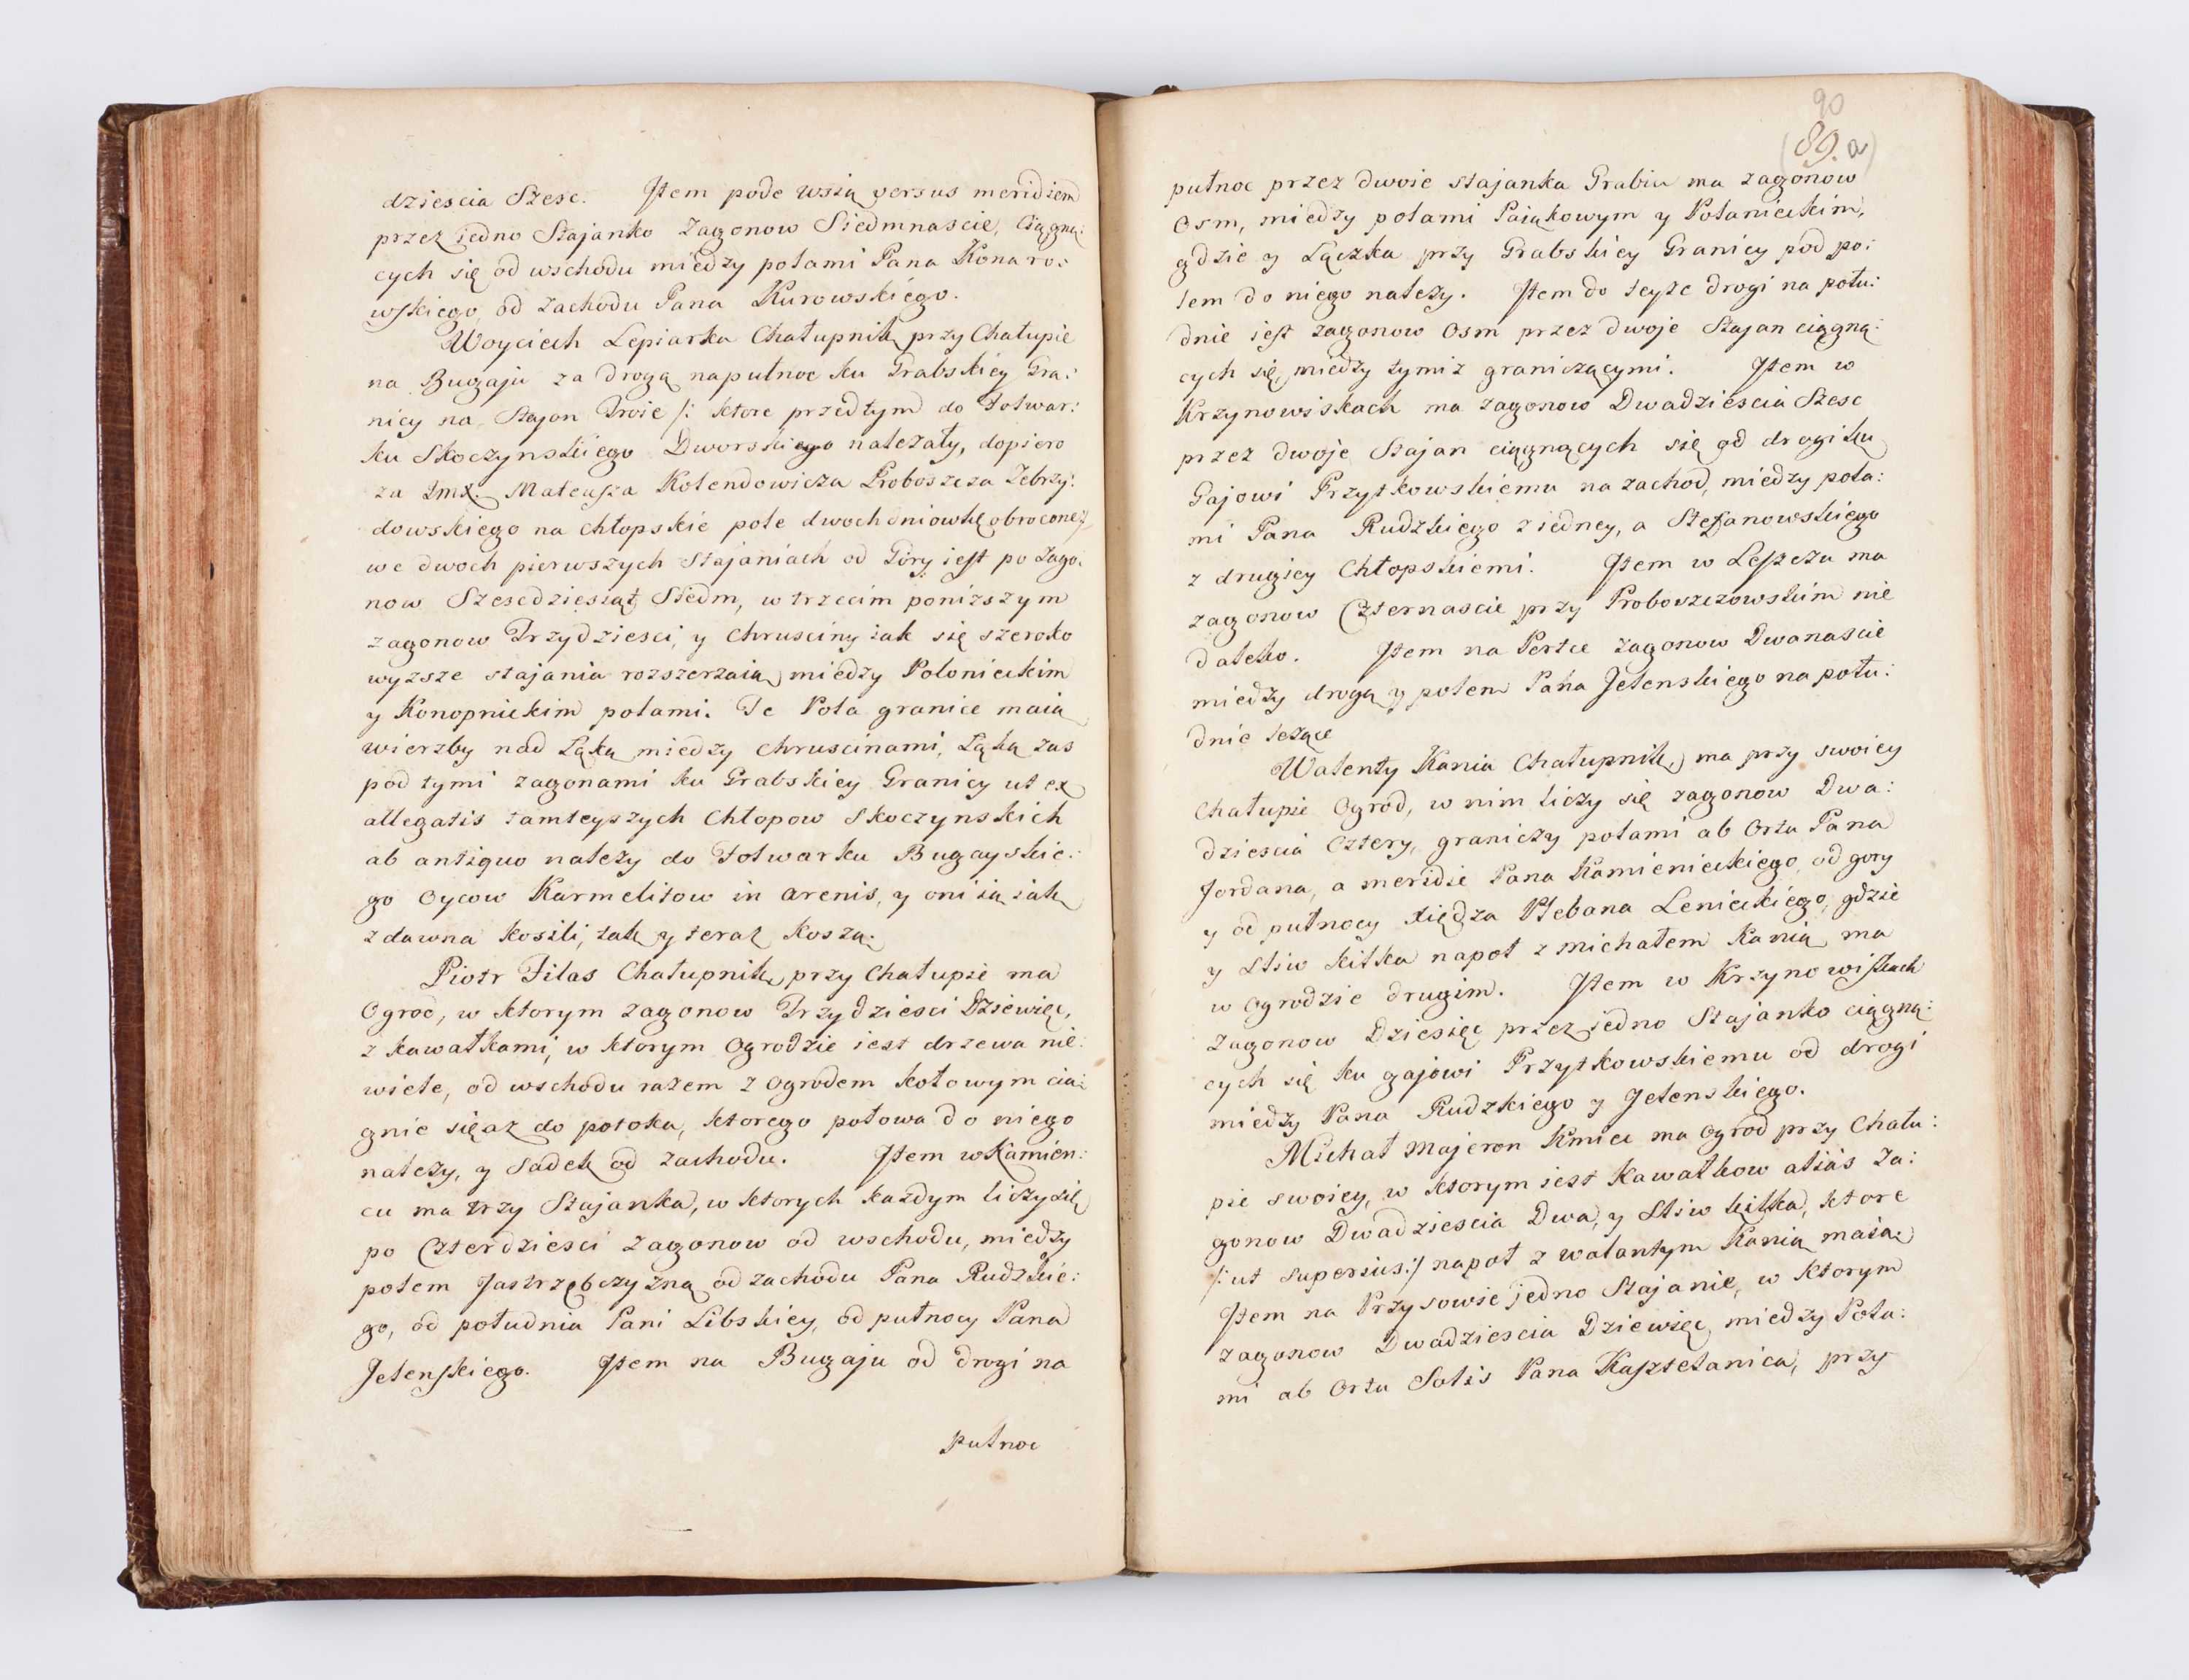 dziescia Szesc. Jtem pode wsią versus meridiem
przez jedno Stajanko Zagonow Siedmnascie, Ciągną:
cych się od wschodu między polami Pana Konaro:
wskiego, od zachodu Pana Kurowskiego.
Woyciech Lepiarka Chałupnik, przy Chałupie
na Bugaju za drogą napułnoc ku Grabskiey Gra:
nicy na Stajon Troie /: ktore przedtym do Folwar:
ku Skoczynskiego Dworskiego należały, dopiero
za Jmx. Mateusza Kolendowicza Proboszcza Zebrzy:
dowskiego na chłopskie pole dwoch dniowkę obrocone:/
we dwoch pierwszych Stajaniach od Gory jest po Zago:
now Szescdziesiąt Siedm, w trzecim ponizszym
zagonow Trzydziesci, y Chrusciny iak się szeroko
wyzsze stajania rozszerzaią, między Polonieckim
y Konopnickim polami. Te Pola granice maią
wierzby nad Łąką między chruscinami, Łąką zas
pod tymi zagonami ku Grabskiey Granicy ut ex
allegatis tamteyszych Chłopow Skoczynskich
ab antiquo należy do Folwarku Bugayskie:
go Oycow Karmelitow in arenis, y oni ią iak
zdawna kosili, tak y teraz koszą.
Piotr Filas Chałupnik, przy Chałupie ma
Ogrod, w ktorym zagonow Trzydziesci Dziewięc,
z kawałkami, w ktorym Ogrodzie iest drzewa nie:
wiele, od wschodu razem z Ogrodem kołowym cia:
gnie się az do potoka, ktorego połowa do niego
należy, y Sadek od zachodu. Jtem w Kamień:
cu ma trzy Stajanka, w ktorych każdym liczy się
po Czterdziesci Zagonow od wschodu, między
polem Jastrzębczyzną od zachodu Pana Rudzkie:
go, od południa Pani Libskiey, od pułnocy Pana
Jelenskiego. Jtem na Bugaju od drogi na
pułnoc
90
(89.a)
pułnoc przez dwoie stajanka Grabiu ma zagonow
Osm, między polami Paiąkowym y Polanieckim,
gdzie y Lączka przy Grabskiey Granicy pod po:
lem do niego należy. Jtem do teyze drogi na połu:
dnie jest zagonow Osm przez dwoje Stajan ciągną:
cych się, między tymiz graniczącymi. Jtem w
Krzynowiskach ma zagonow Dwadziescia Szesc
przez dwoje Stajan ciągnących się od drogi ku
Gajowi Przytkowskiemu na zachod, między pola:
mi Pana Rudzkiego z iedney, a Stefanowskiego
z drugiey Chłopskiemi. Jtem w Leszczu ma
zagonow Czternascie przy Proboszczowskim nie
daleko. Jtem na Pertce zagonow Dwanascie
między drogą y polem Pana Jelenskiego na połu:
dnie leżące
Walenty Kania Chałupnik, ma przy swoiey
Chałupie Ogrod, w nim liczy się zagonow Dwa:
dziescia Cztery, graniczy polami ab Ortu Pana
Jordana, a meridie Pana Kamienieckiego, od gory
y od pułnocy xiędza Plebana Lenieckiego, gdzie
y Sliw kilka napoł z Michałem Kanią ma
w Ogrodzie drugim. Jtem w Krzynowiskach
Zagonow Dziesięc przez jedno Stajanko ciągną:
cych się ku gajowi Przytkowskiemu od drogi
między Pana Rudzkiego y Jelenskiego.
Michał Majeron Kmiec ma Ogrod przy Chału:
pie swoiey, w ktorym iest kawałkow alias Za:
gonow Dwadziescia Dwa, y Sliw kilka, ktore
/: ut superius :/ napoł z walantym Kanią maią.
Jtem na Przysowie jedno Stajanie, w ktorym
zagonow Dwadziescia Dziewięc między Pola:
mi ab Ortu Solis Pana Kasztelanica, przy